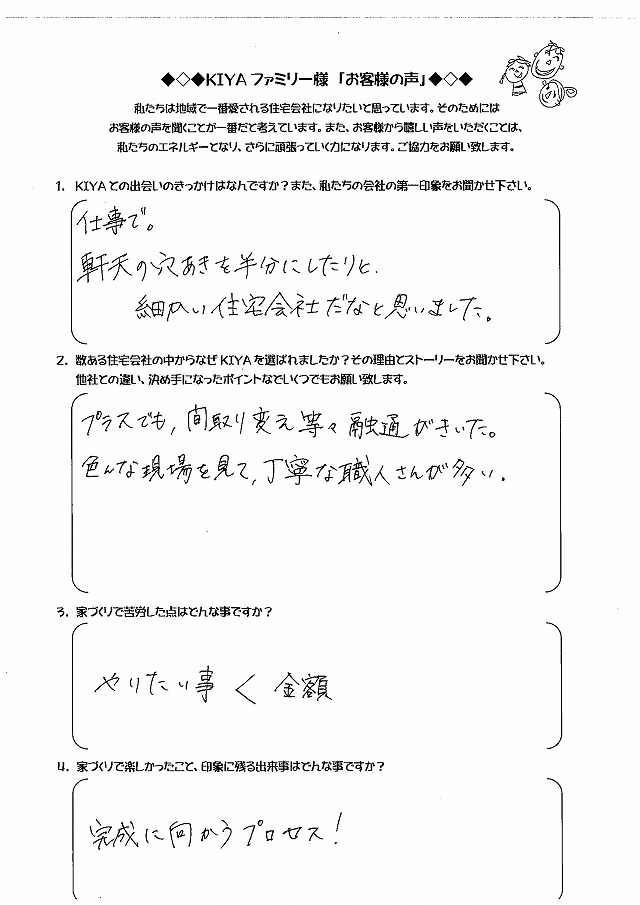 ◆◇◆KIYAファミリー様「お客様の声」◆◇◆
私たちは地域で一番愛される住宅会社になりたいと思っています。そのためには
お客様の声を聞くことが一番だと考えています。また、お客様から嬉しい声をいただくことは、
私たちのエネルギーとなり、さらに頑張っていく力になります。ご協力をお願い致します。
1. KIYAとの出会いのきっかけはなんですか？また、私たちの会社の第一印象をお聞かせ下さい。
仕事で。
軒天の穴あきを半分にしたりと、
細かい住宅会社だなと思いました。
2. 数ある住宅会社の中からなぜKIYAを選ばれましたか？その理由とストーリーをお聞かせ下さい。
他社との違い、決め手になったポイントなどいくつでもお願い致します。
プラスでも、間取り変え等々融通がきいた。
色んな現場を見て、丁寧な職人さんが多い。
3. 家づくりで苦労した点はどんな事ですか？
やりたい事 < 金額
4. 家づくりで楽しかったこと、印象に残る出来事はどんな事ですか？
完成に向かうプロセス！